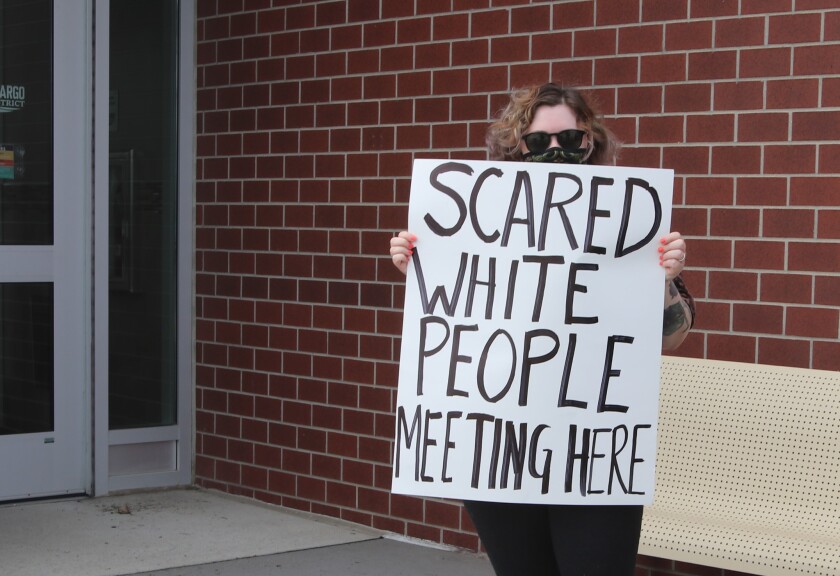 ARGO
TRICT
SCARED
WHITE
PEOPLE
MEETING HERE